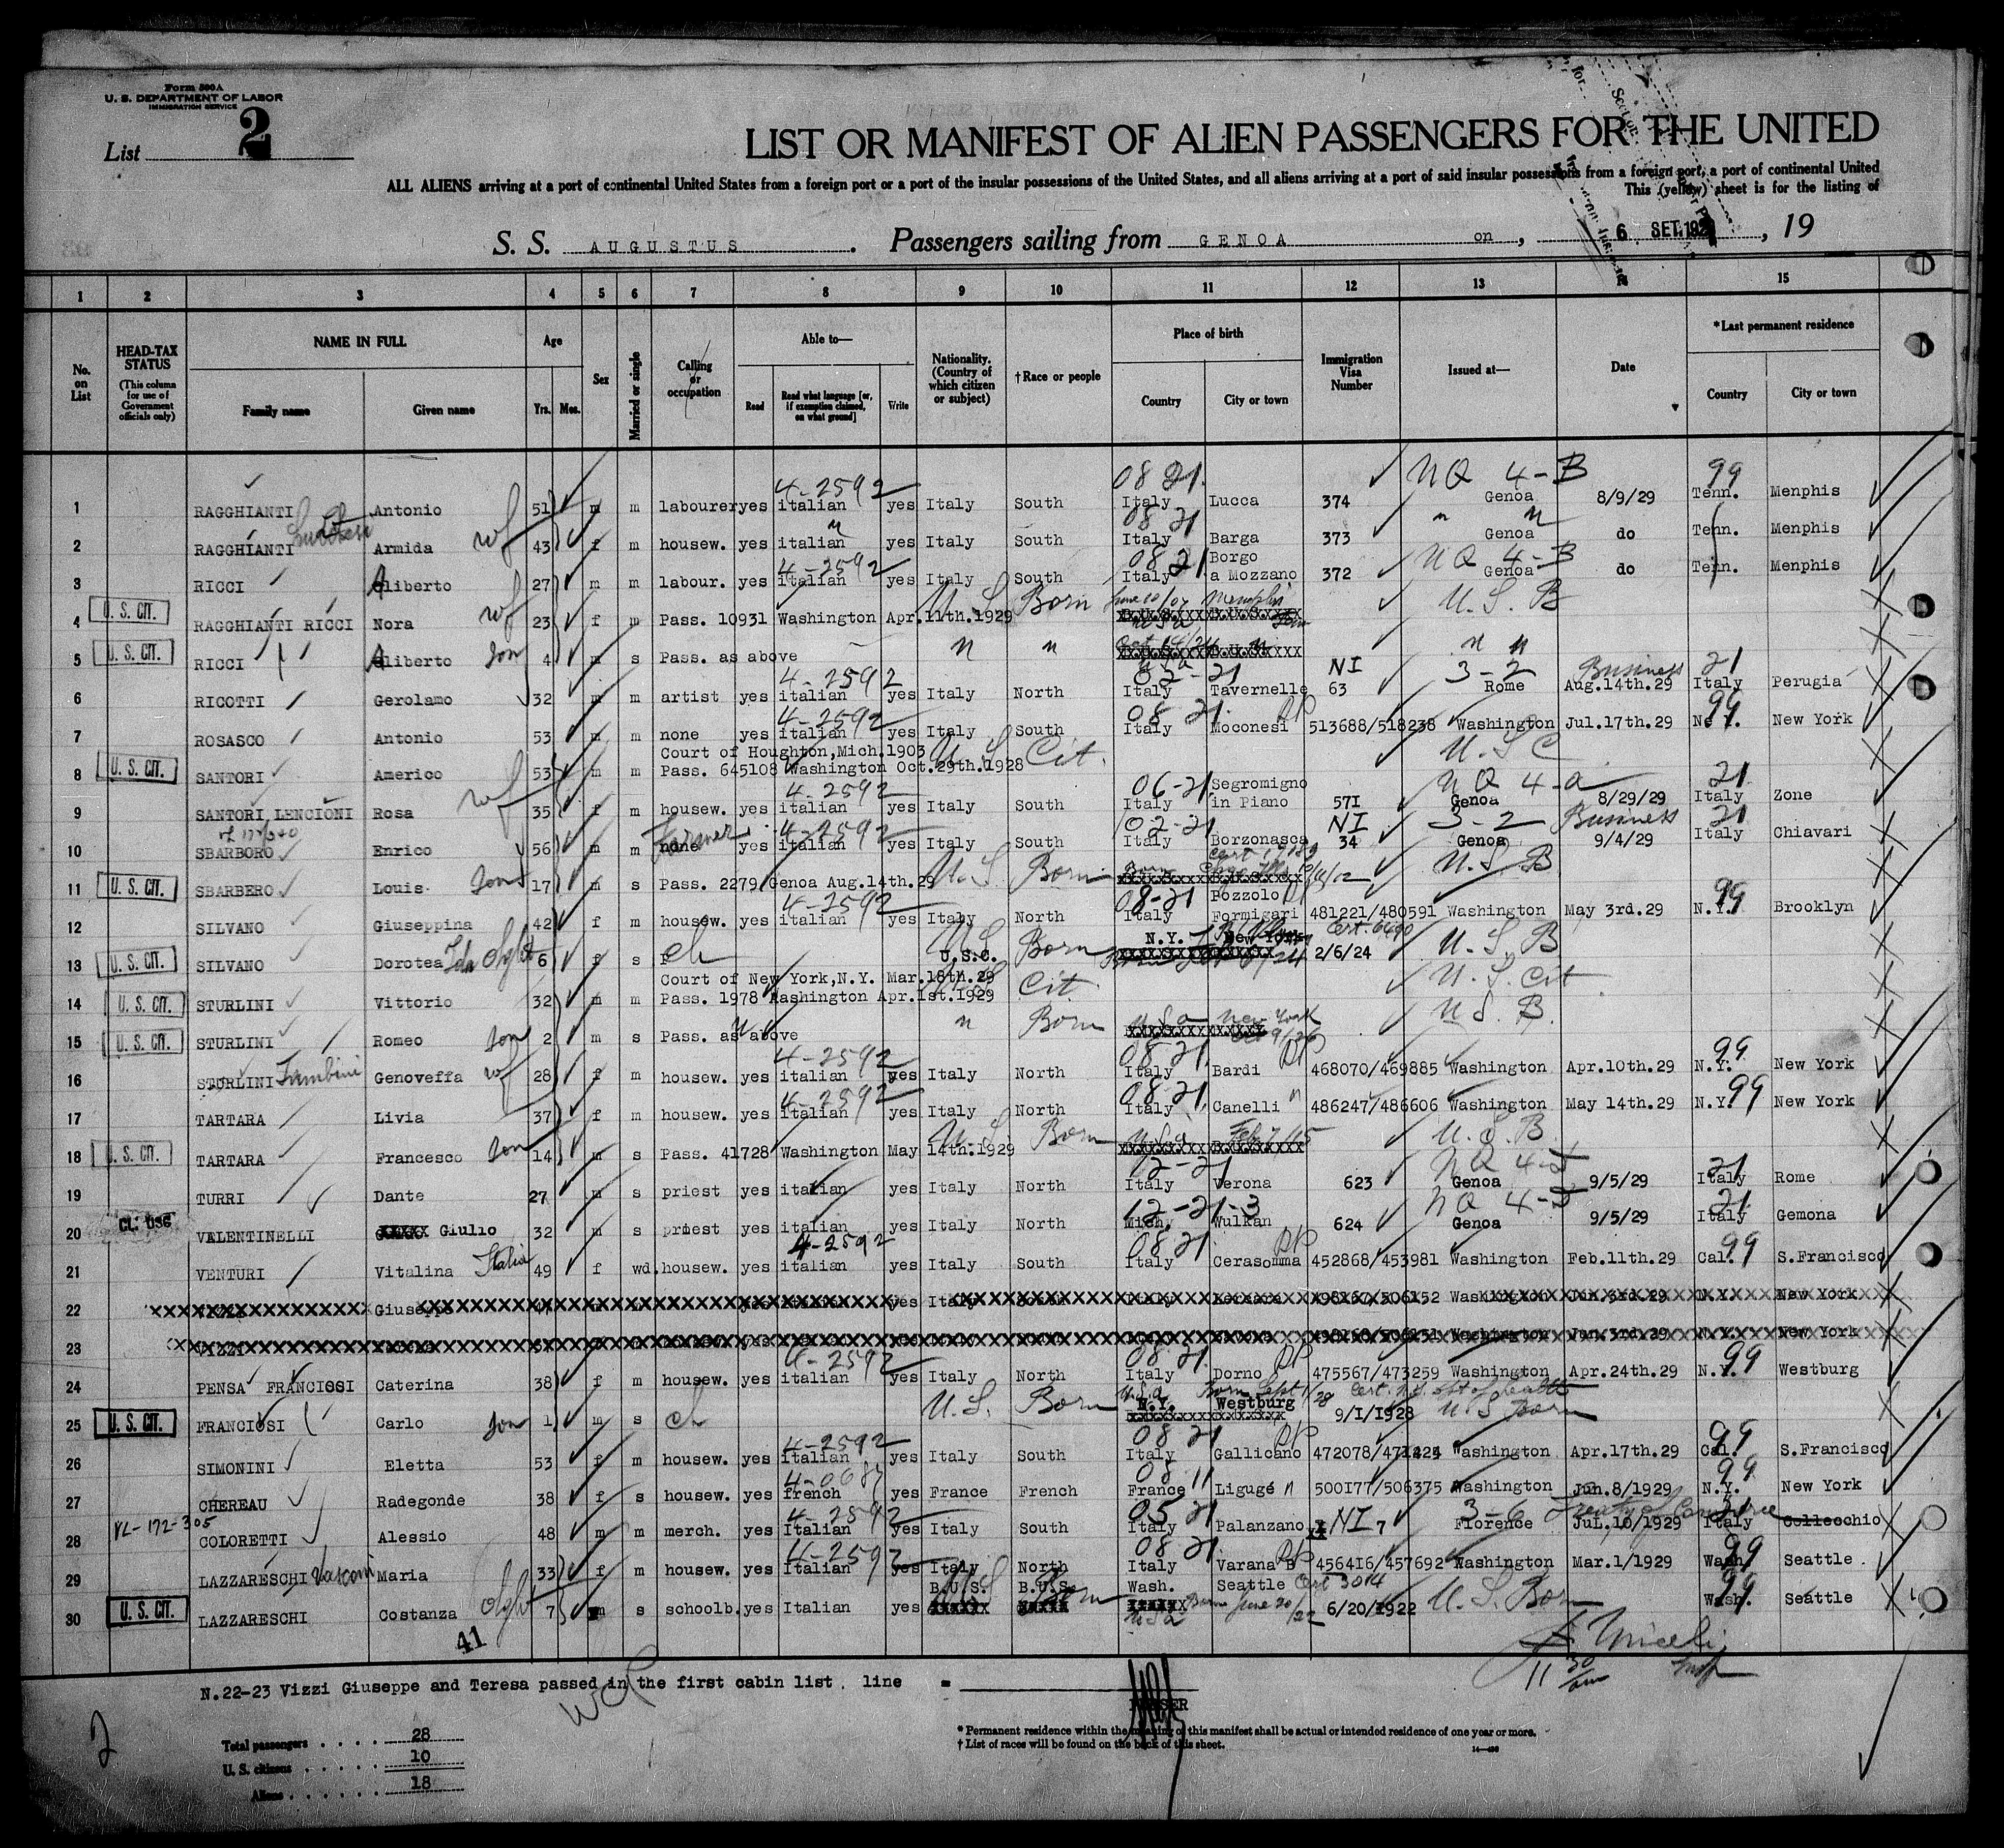 Form 500A
U. S. DEPARTMENT OF LABOR
IMMIGRATION SERVICE
List 2
LIST OR MANIFEST OF ALIEN PASSENGERS FOR THE UNITED
ALL ALIENS arriving at a port of continental United States from a foreign port or a port of the insular possessions of the United States, and all aliens arriving at a port of said insular possessions from a foreign port, a port of continental United
This (yellow) sheet is for the listing of
S. S. AUGUSTUS. Passengers sailing from GENOA on, 6 SET. , 19
1 2 3 4 5 6 7 8 9 10 11 12 13 15
No. on List
HEAD-TAX STATUS (This column for use of Government officials only)
NAME IN FULL Family name Given name
Age Yrs. Mos.
Sex
Married or single
Calling or occupation
Able to— Read Read what language [or, if exemption claimed, on what ground] Write
Nationality. (Country of which citizen or subject)
†Race or people
Place of birth Country City or town
Immigration Visa Number
Issued at—
Date
*Last permanent residence Country City or town
1 RAGGHIANTI Antonio 51 m m labourer yes 4-2592 italian yes Italy South 08 21 Italy Lucca 374 NQ 4-B Genoa 8/9/29 99 Tenn. Menphis
2 RAGGHIANTI Armida wf 43 f m housew. yes italian yes Italy South 08 21 Italy Barga 373 Genoa do Tenn. Menphis
3 RICCI Aliberto 27 m m labour. yes 4-2592 italian yes Italy South 08 21 Italy Borgo a Mozzano 372 NQ 4-B Genoa do Tenn. Menphis
4 U. S. CIT. RAGGHIANTI RICCI Nora wf 23 f m Pass. 10931 Washington Apr.11th.1929 U.S. Born June 10/07 Memphis U.S.B
5 U. S. CIT. RICCI Aliberto son 4 m s Pass. as above " " " "
6 RICOTTI Gerolamo 32 m m artist yes 4-2592 italian yes Italy North 02-21 Italy Tavernelle NI 63 3-2 Rome Business Aug.14th.29 21 Italy Perugia
7 ROSASCO Antonio 53 m m none yes 4-2592 italian yes Italy South 08 21 Italy Moconesi RP 513688/518238 Washington Jul.17th.29 99 New York
8 U. S. CIT. SANTORI Americo 53 m m Court of Houghton,Mich.1903 Pass. 645108 Washington Oct.29th.1928 U.S. Cit. U.S.C
9 SANTORI LENCIONI Rosa wf 35 f m housew. yes 4-2592 italian yes Italy South 06-21 Italy Segromigno in Piano 571 NQ 4-a Genoa 8/29/29 21 Italy Zone
10 SBARBORO Enrico 56 m m none Farmer yes 4-2592 italian yes Italy South 02-21 Italy Borzonasca NI 34 3-2 Genoa Business 9/4/29 21 Italy Chiavari
11 U. S. CIT. SBARBERO Louis son 17 m s Pass. 2279 Genoa Aug.14th.29 U.S. Born U.S.B
12 SILVANO Giuseppina 42 f m housew. yes 4-2592 italian yes Italy North 08-21 Italy Pozzolo Formigari 481221/480591 Washington May 3rd.29 99 N.Y. Brooklyn
13 U. S. CIT. SILVANO Dorotea Ida 6 f s ch U.S. U.S.C. Born N.Y. New York 2/6/24 Cert. 6490 U.S.B
14 U. S. CIT. STURLINI Vittorio 32 m m Court of New York,N.Y. Mar.18th.29 Pass. 1978 Washington Apr.1st.1929 Cit. U.S. Cit.
15 U. S. CIT. STURLINI Romeo son 2 m s Pass. as above " Born U.S.a New York U.S.B.
16 STURLINI Tambini Genoveffa wf 28 f m housew. yes 4-2592 italian yes Italy North 08 21 Italy Bardi RP 468070/469885 Washington Apr.10th.29 99 N.Y. New York
17 TARTARA Livia 37 f m housew. yes 4-2592 italian yes Italy North 08 21 Italy Canelli " 486247/486606 Washington May 14th.29 99 N.Y. New York
18 U. S. CIT. TARTARA Francesco son 14 m s Pass. 41728 Washington May 14th.1929 U.S. Born U.S.a Feb 7/15 U.S.B.
19 TURRI Dante 27 m s priest yes italian yes Italy North 12-21 Italy Verona 623 NQ 4-J Genoa 9/5/29 21 Italy Rome
20 CL. USC VALENTINELLI Giulio 32 m s priest yes italian yes Italy North 12-21-3 Mich. Wulkan 624 NQ 4-J Genoa 9/5/29 21 Italy Gemona
21 VENTURI Vitalina Italia 49 f wd. housew. yes 4-2592 italian yes Italy South 08 21 Italy Cerasomma RP 452868/453981 Washington Feb.11th.29 99 Cal. S.Francisco
22 Giuseppe yes Italy 498167/506152 Washington Jun.3rd.29 N.Y. New York
23 VIZZI Washington Jun.3rd.29 N.Y. New York
24 PENSA FRANCIOSI Caterina 38 f m housew. yes 4-2592 italian yes Italy North 08 21 Italy Dorno RP 475567/473259 Washington Apr.24th.29 99 N.Y. Westburg
25 U. S. CIT. FRANCIOSI Carlo son 1 m s ch U.S. Born U.S.a N.Y. Born Sept 1/28 Westburg 9/1/1928 U.S. Born
26 SIMONINI Eletta 53 f m housew. yes 4-2592 italian yes Italy South 08 21 Italy Gallicano RP 472078/471424 Washington Apr.17th.29 99 Cal. S.Francisco
27 CHEREAU Radegonde 38 f s housew. yes french yes France French 08 11 France Ligugé " 500177/506375 Washington Jun.8/1929 99 N.Y. New York
28 COLORETTI Alessio 48 m m merch. yes 4-2592 Italian yes Italy South 05 21 Italy Palanzano NI 7 3-6 Florence Treaty of Commerce Jul.10/1929 21 Italy Collecchio
29 LAZZARESCHI Vasconi Maria 33 f m housew. yes 4-2592 Italian yes Italy North 08 21 Italy Varana RP 456416/457692 Washington Mar.1/1929 99 Wash. Seattle
30 U. S. CIT. LAZZARESCHI Costanza 7 m s schoolb. yes Italian yes B.U.S. B.U.S. Born Wash. Seattle Cert 3014 U.S.a Born June 20/22 6/20/1922 U.S. Born 99 Wash. Seattle
41
11 30 am Insp
N.22-23 Vizzi Giuseppe and Teresa passed in the first cabin list, line =
* Permanent residence within the meaning of this manifest shall be actual or intended residence of one year or more.
† List of races will be found on the back of this sheet.
2
Total passengers . . . . 28
U. S. citizens . . . . . 10
Aliens . . . . . . 18